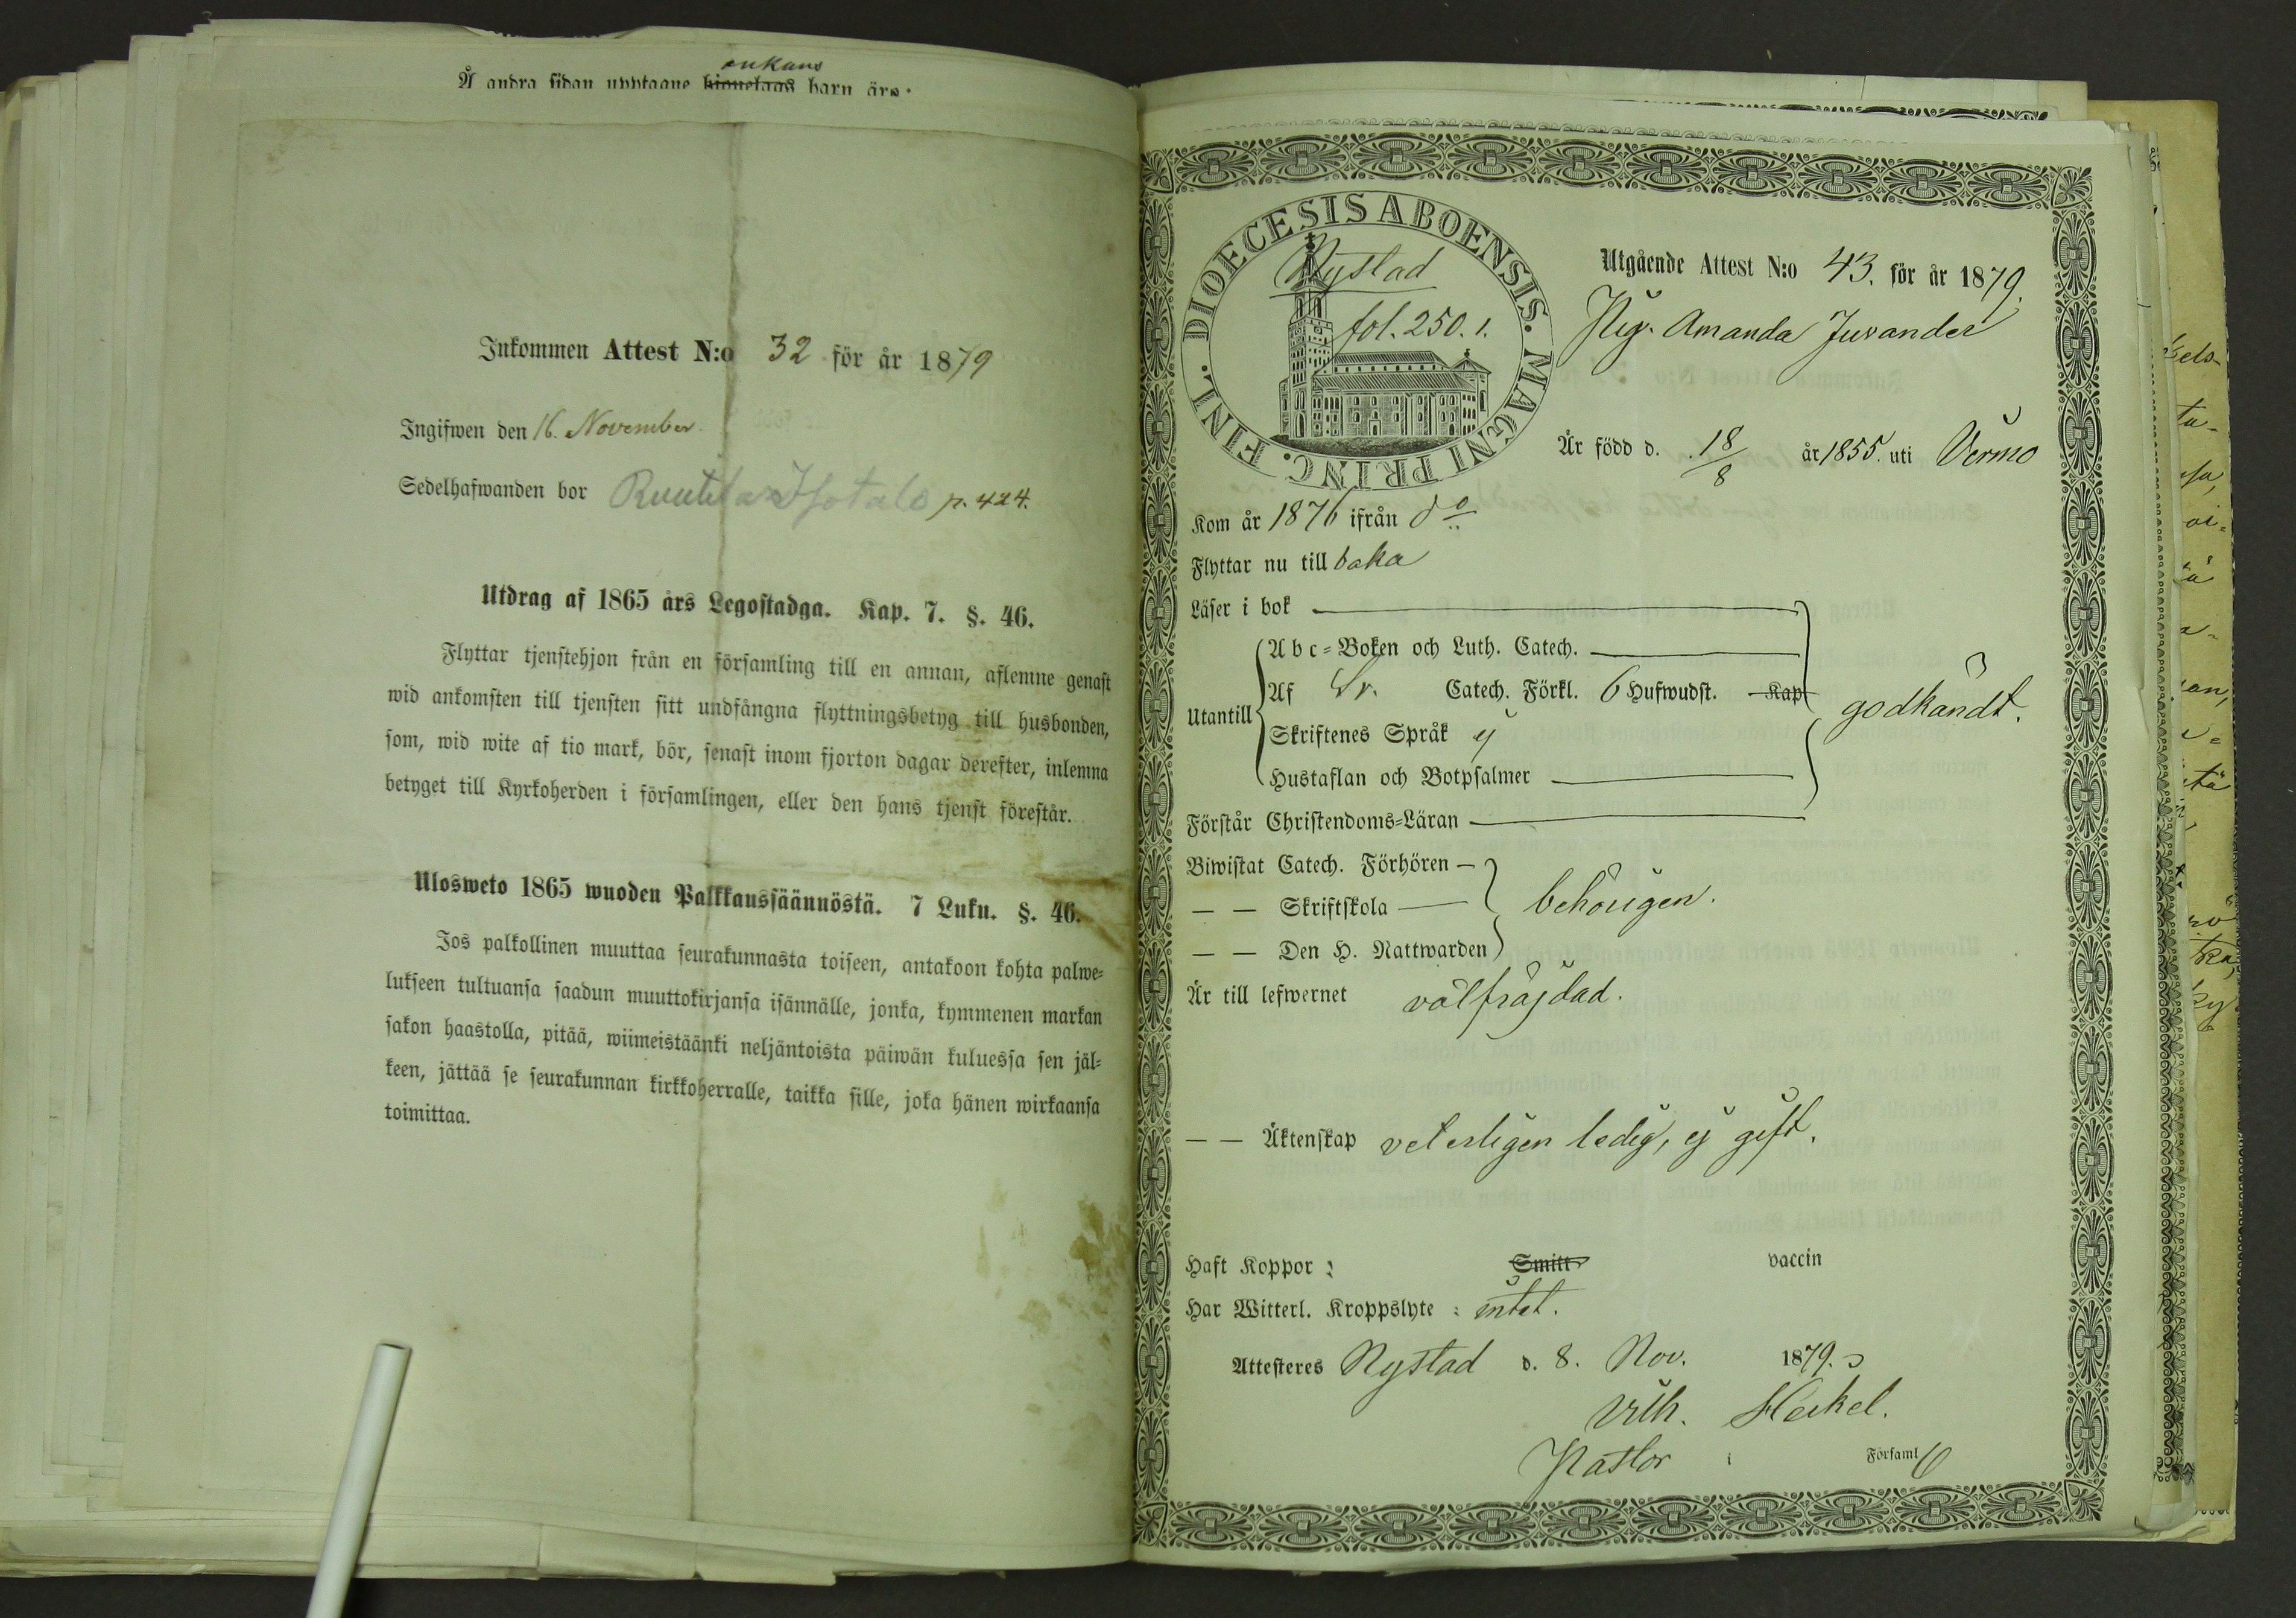 ankans
Å andra sidan upptagne hjonelags barn äro:
Inkommen Attest N:o 32 för år 1879
Ingifwen den 16. November
Sedelhafwanden bor Ruutila Isotalo p. 424.
Utdrag af 1865 års Legostadga. Kap. 7. §. 46.
Flyttar tjenstehjon från en församling till en annan, aflemne genast
wid ankomsten till tjensten sitt undfångna flyttningsbetyg till husbonden,
som, wid wite af tio mark, bör, senast inom fjorton dagar derefter, inlemna
betyget till Kyrkoherden i församlingen, eller den hans tjenst förestår.
Ulosweto 1865 wuoden Palkkaussäännöstä. 7 Luku. §. 46.
Jos palkollinen muuttaa seurakunnasta toiseen, antakoon kohta palwe-
lukseen tultuansa saadun muuttokirjansa isännälle, jonka, kymmenen markan
sakon haastolla, pitää, wiimeistäänki neljäntoista päiwän kuluessa sen jäl-
keen, jättää se seurakunnan kirkkoherralle, taikka sille, joka hänen wirkaansa
toimittaa.
DIOECESIS ABOENSIS. MAGNI PRINC. FINL.
Nystad
fol. 250. 1.
Utgående Attest N:o 43. för år 1879.
Pig. Amanda Juvander
Är född d. 18/8 år 1855. uti Vermo
Kom år 1876 ifrån do
Flyttar nu till baka
Läser i bok
Utantill
Abc-Boken och Luth. Catech.
Af Sv. Catech. Förkl. 6 Hufwudst. Kap
godkändt.
Skriftenes Språk ej
Hustaflan och Botpsalmer
Förstår Christendoms-Läran
Biwistat Catech. Förhören
— — Skriftskola
behörigen.
— — Den H. Nattwarden
Är till lefwernet välfräjdad.
— — Äktenskap veterligen ledig, ej gift.
Haft Koppor: Smitt vaccin
Har Witterl. Kroppslyte: intet.
Attesteres Nystad d. 8. Nov. 1879.
Vilh. Heikel.
Pastor i Församl